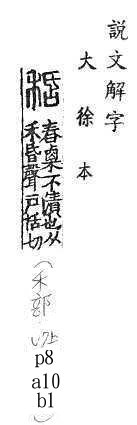 說文解字
大徐本
舂不潰也从
禾昏聲戶括切
(禾部
七上
p8
a10
b1
)